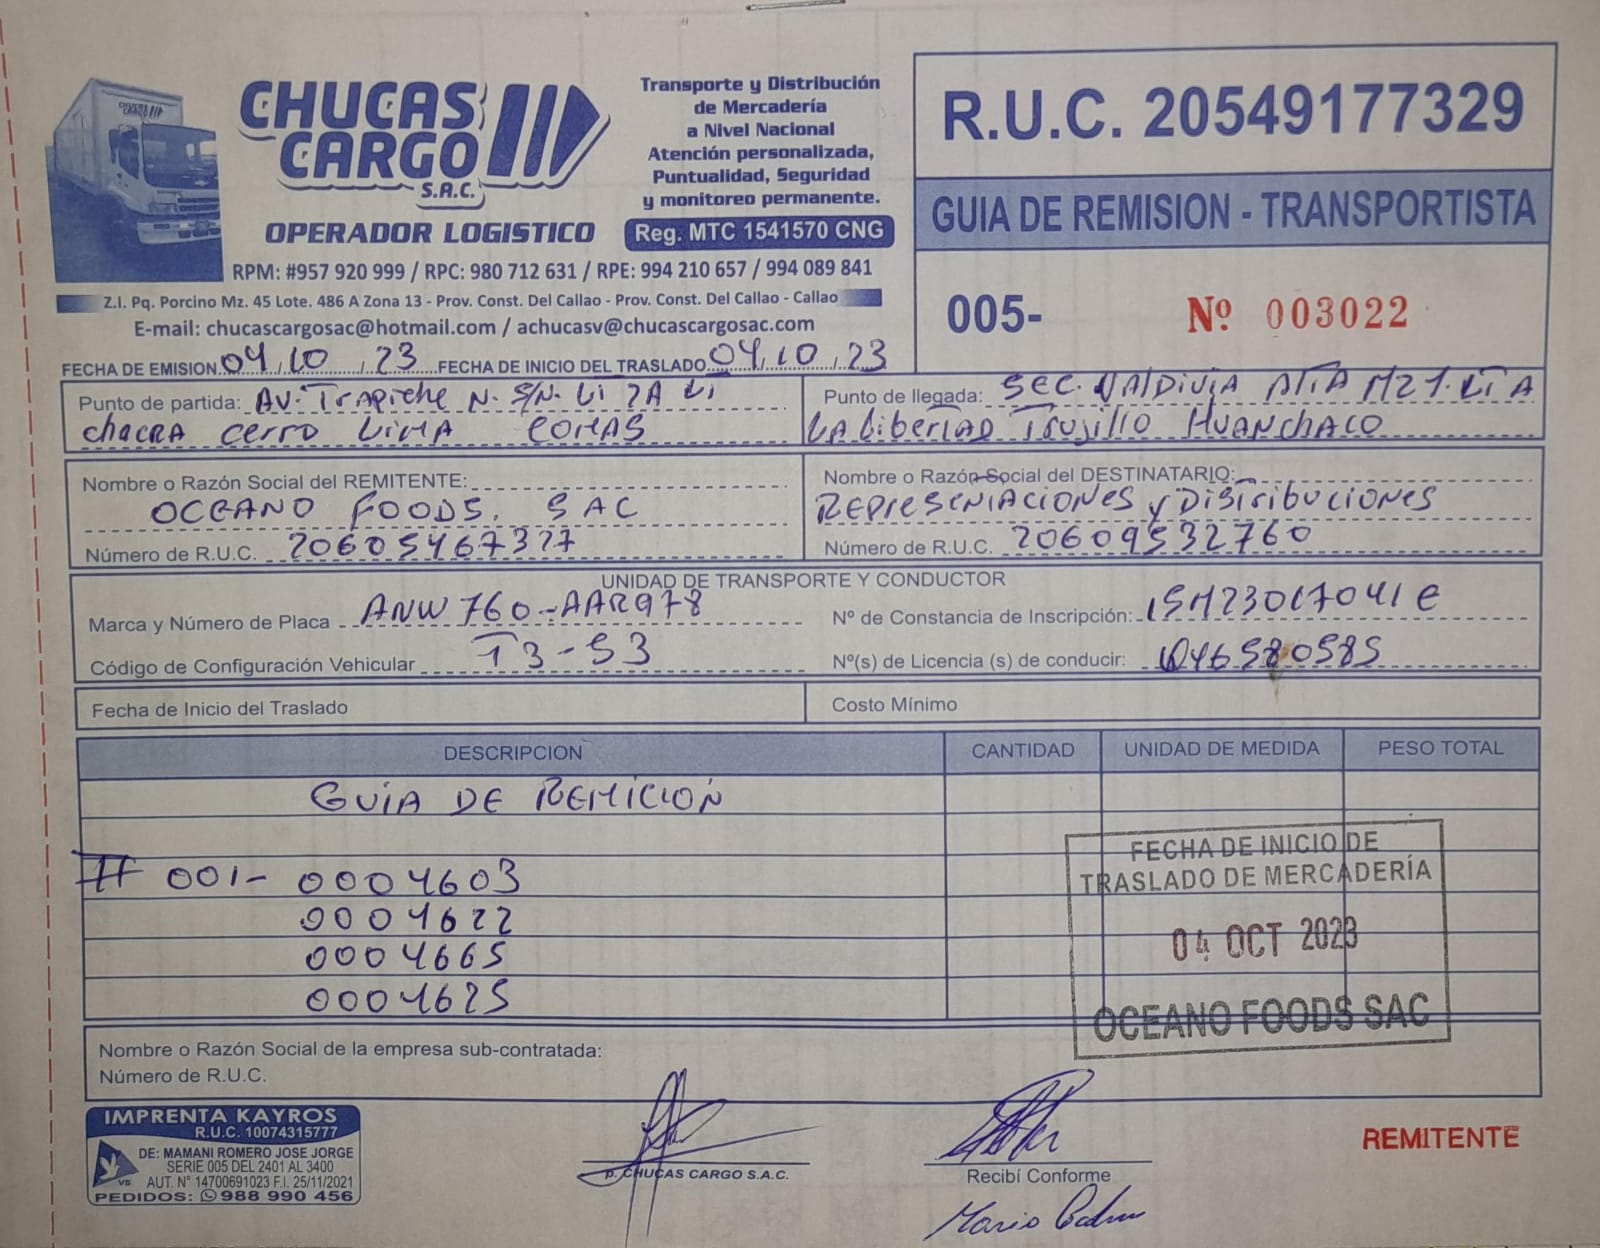 CHUCAS CARGO
CHUCAS
CARGO
S.A.C.
OPERADOR LOGISTICO
Transporte y Distribución
de Mercadería
a Nivel Nacional
Atención personalizada,
Puntualidad, Seguridad
y monitoreo permanente.
Reg. MTC 1541570 CNG
RPM: #957 920 999 / RPC: 980 712 631 / RPE: 994 210 657 / 994 089 841
Z.I. Pq. Porcino Mz. 45 Lote. 486 A Zona 13 - Prov. Const. Del Callao - Prov. Const. Del Callao - Callao
E-mail: chucascargosac@hotmail.com / achucasv@chucascargosac.com
R.U.C. 20549177329
GUIA DE REMISION - TRANSPORTISTA
005- Nº 003022
FECHA DE EMISION 04, 10, 23 FECHA DE INICIO DEL TRASLADO 04, 10, 23
Punto de partida: AV. Trapiche N. S/N. Li ZA Li
chacRA cerro LiMA COMAS
Punto de llegada: SEC. VALDIVIA ALTA MZ 1. LT A
LA LibERTAD Trujillo HUANCHACO
Nombre o Razón Social del REMITENTE:
OCEANO FOODS. SAC
Número de R.U.C. 20605467327
Nombre o Razón Social del DESTINATARIO:
REPresENtACIONES y DISTribuciONES
Número de R.U.C. 20609532760
UNIDAD DE TRANSPORTE Y CONDUCTOR
Marca y Número de Placa ANW 760 - AAR978
Nº de Constancia de Inscripción: 15M23017041E
Código de Configuración Vehicular T3-S3
Nº(s) de Licencia (s) de conducir: Q46580585
Fecha de Inicio del Traslado
Costo Mínimo
DESCRIPCION CANTIDAD UNIDAD DE MEDIDA PESO TOTAL
GUIA DE REMICION
# 001- 0004603
0004622
0004665
0004625
FECHA DE INICIO DE
TRASLADO DE MERCADERÍA
04 OCT 2023
OCEANO FOODS SAC
Nombre o Razón Social de la empresa sub-contratada:
Número de R.U.C.
IMPRENTA KAYROS
R.U.C. 10074315777
DE: MAMANI ROMERO JOSE JORGE
SERIE 005 DEL 2401 AL 3400
AUT. N° 14700691023 F.I. 25/11/2021
PEDIDOS: 988 990 456
p. CHUCAS CARGO S.A.C.
Recibí Conforme
Mario
REMITENTE